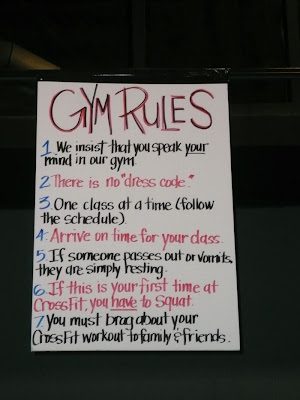 GYM RULES
1. We insist that you speak your
mind in our gym.
2. There is no "dress code."
3. One class at a time (follow
the schedule)
4. Arrive on time for your class.
5. If someone passes out or vomits,
they are simply resting.
6. If this is your first time at
CrossFit, you have to squat.
7. You must brag about your
CrossFit workout to family & friends.